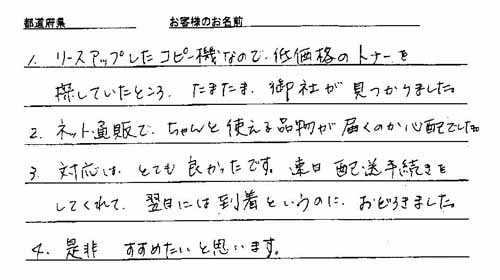 都道府県 お客様のお名前
1. リースアップしたコピー機なので、低価格のトナーを
探していたところ、たまたま、御社が見つかりました。
2. ネット通販で、ちゃんと使える品物が届くのか心配でした。
3. 対応は、とても良かったです。連日 配送手続きを
してくれて、翌日には到着というのに、おどろきました。
4. 是非 すすめたいと思います。